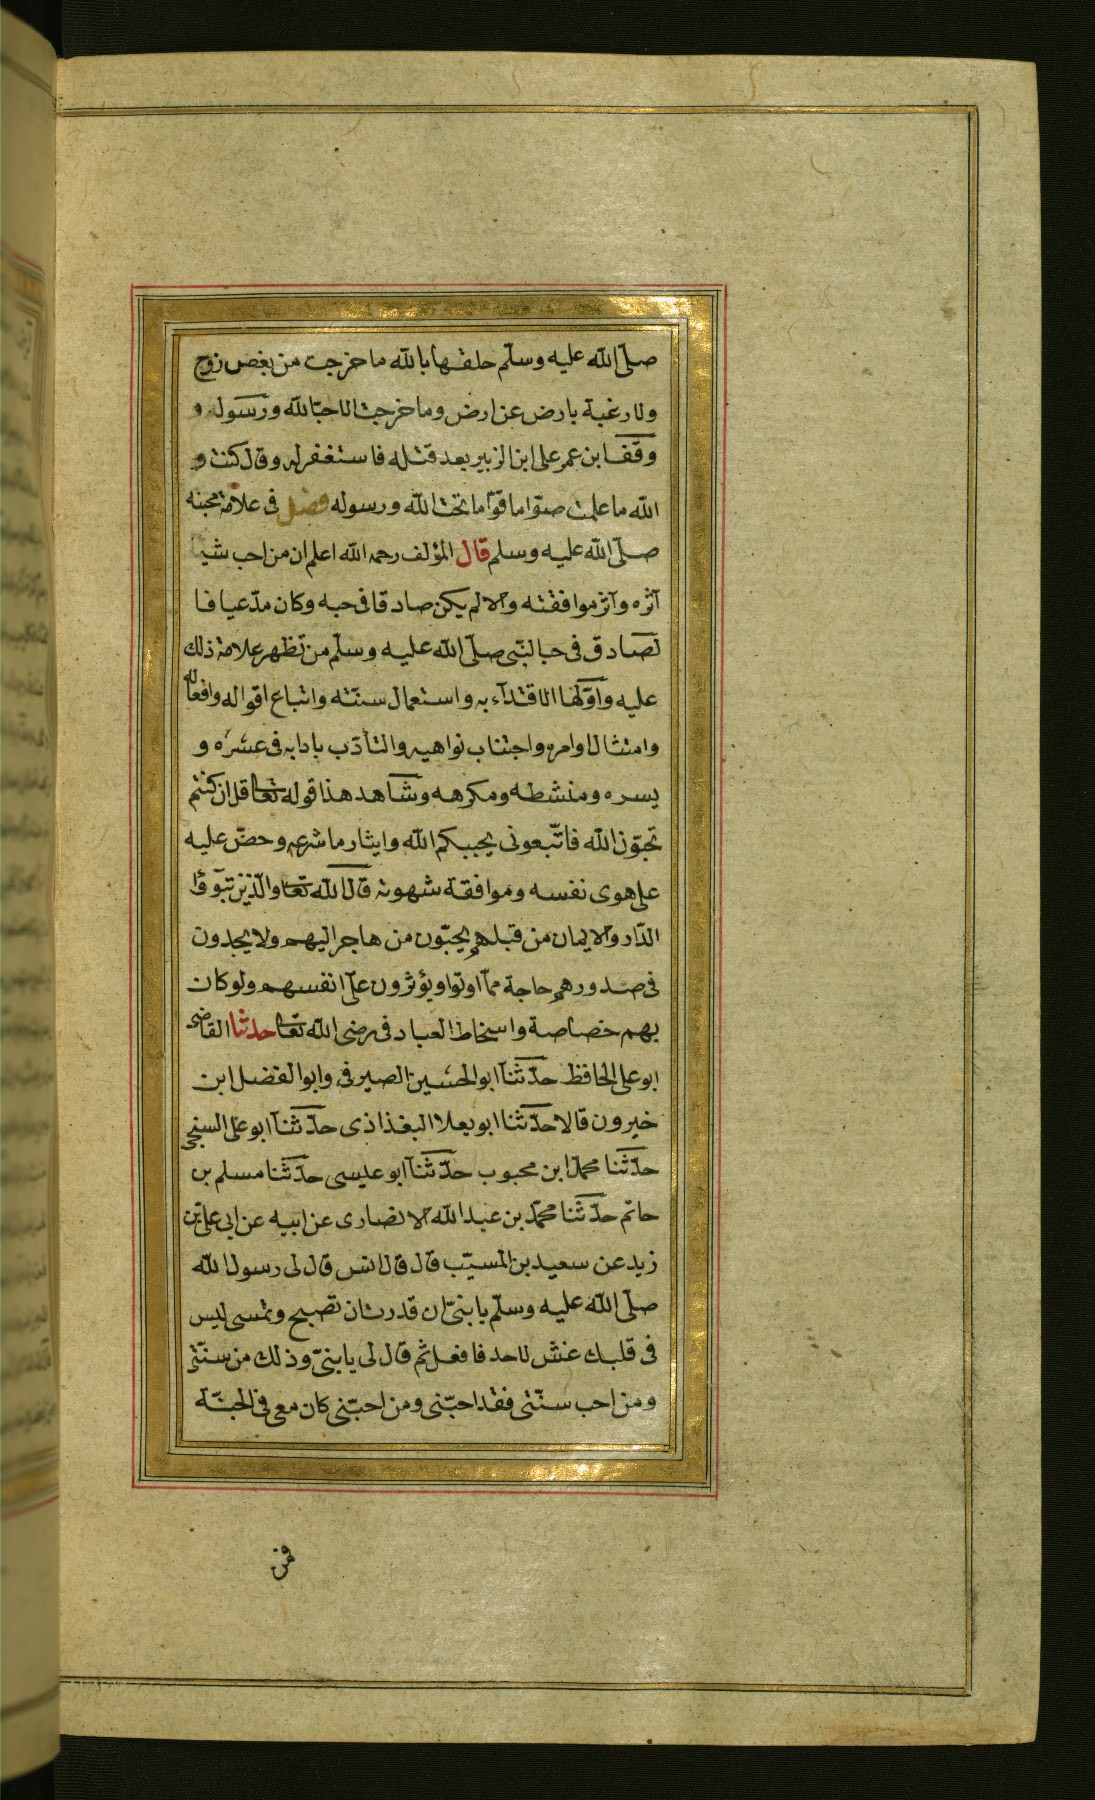 صلّى الله عليه وسلّم حلفها بالله ما خرجت من بغض زوج
ولا رغبة بارض عن ارض وما خرجت الا حبّا لله ورسوله و
وقف ابن عمر على ابن الزبير بعد قتله فاستغفر له وقال كنت و
الله ما علمت صوّاما قوّاما تحب الله ورسوله فصل فى علامة محبته
صلّى الله عليه وسلم قال المؤلف رحمه الله اعلم ان من احب شيئا
آثره وآثر موافقته والا لم يكن صادقا فى حبه وكان مدّعيا فا
لصادق فى حب النبّى صلّى الله عليه وسلّم من تظهر علامة ذلك
عليه واوّلها الاقتدآء به واستعمال سنّته واتباع اقواله وافعاله
وامتثال اوامره واجتناب نواهيه والتأدّب بادابه فى عسره و
يسره ومنشطه ومكرهه وشاهد هذا قوله تعا قل ان كنتم
تحبّون الله فاتّبعونى يحببكم الله وايثار ما شرعه وحضّ عليه
على هوى نفسه وموافقة شهوته قال الله تعا والّذين تبوّؤا
الدّار والايمان من قبلهم يحبّون من هاجر اليهم ولا يجدون
فى صدورهم حاجة ممّا اوتوا ويؤثرون علىٓ انفسهم ولو كان
بهم خصاصة واسخاط العباد فى رضى الله تعا حدثنا القاضى
ابو على الحافظ حدّثنا ابو الحسين الصيرفى وابو الفضل ابن
خيرون قالا حدّثنا ابو يعلا البغذاذى حدّثنا ابو على السنجى
حدّثنا محمّد ابن محبوب حدّثنا ابو عيسى حدّثنا مسلم بن
حاتم حدّثنا محمّد بن عبد الله الانصارى عن ابيه عن ابى على بن
زيد عن سعيد بن المسيّب قال قال انس قال لى رسول الله
صلّى الله عليه وسلّم يا بنىّ ان قدرت ان تصبح وتمسى ليس
فى قلبك غش لاحد فافعل ثم قال لى يا بنىّ وذلك من سنّتى
ومن احب سنّتى فقد احبّنى ومن احبّنى كان معى فى الجنّة
فمن